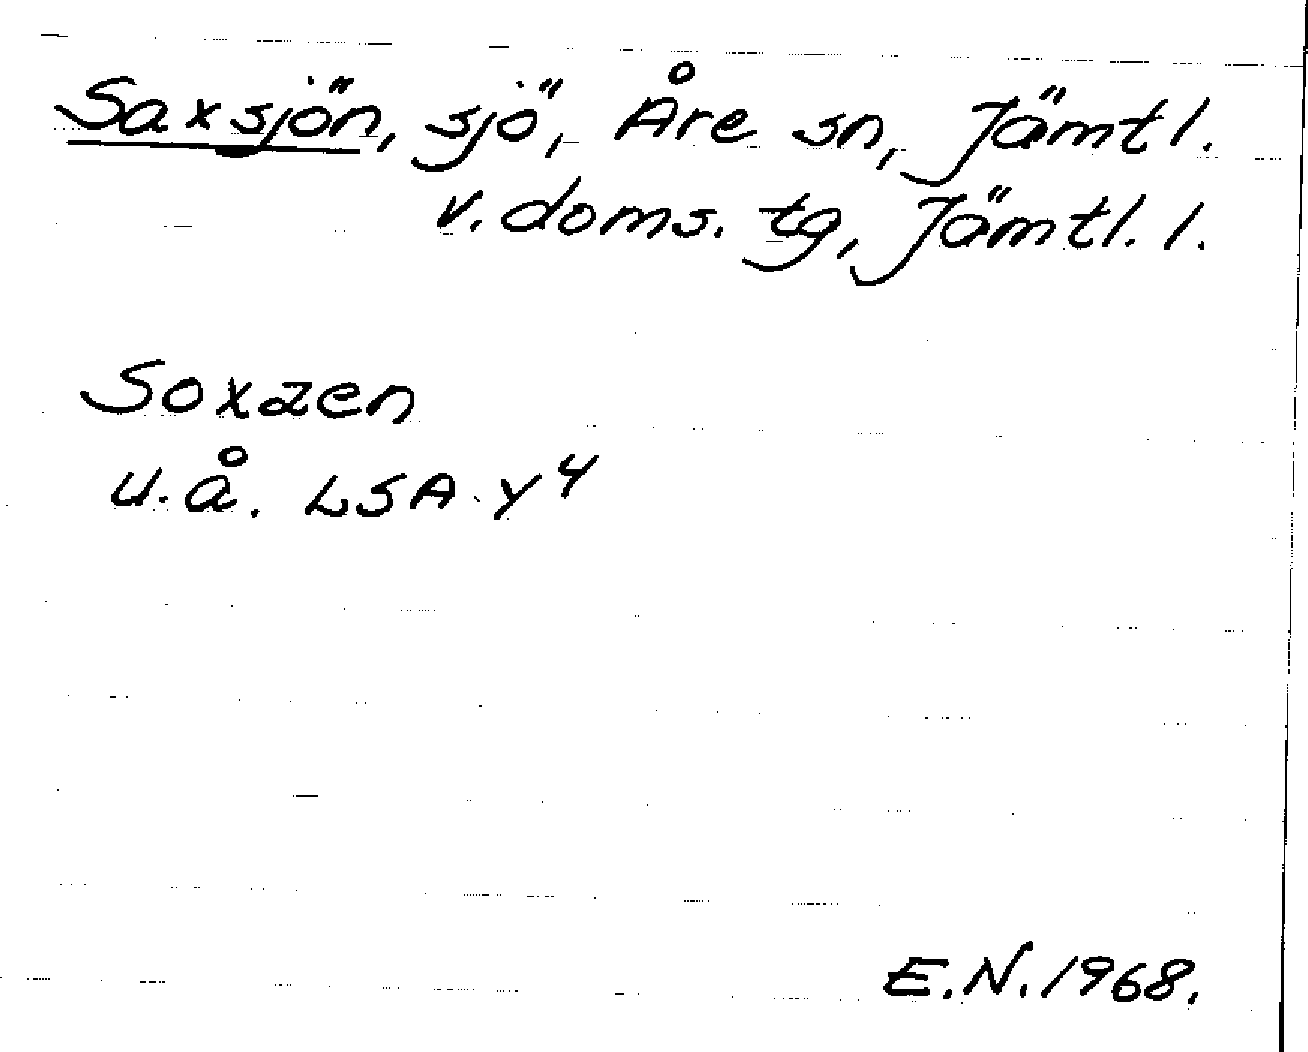 Saxsjön, sjö, Åre sn, Jämtl.
v. doms. tg, Jämtl. l.
Soxzen
u.å. LSA Y4
E.N. 1968.